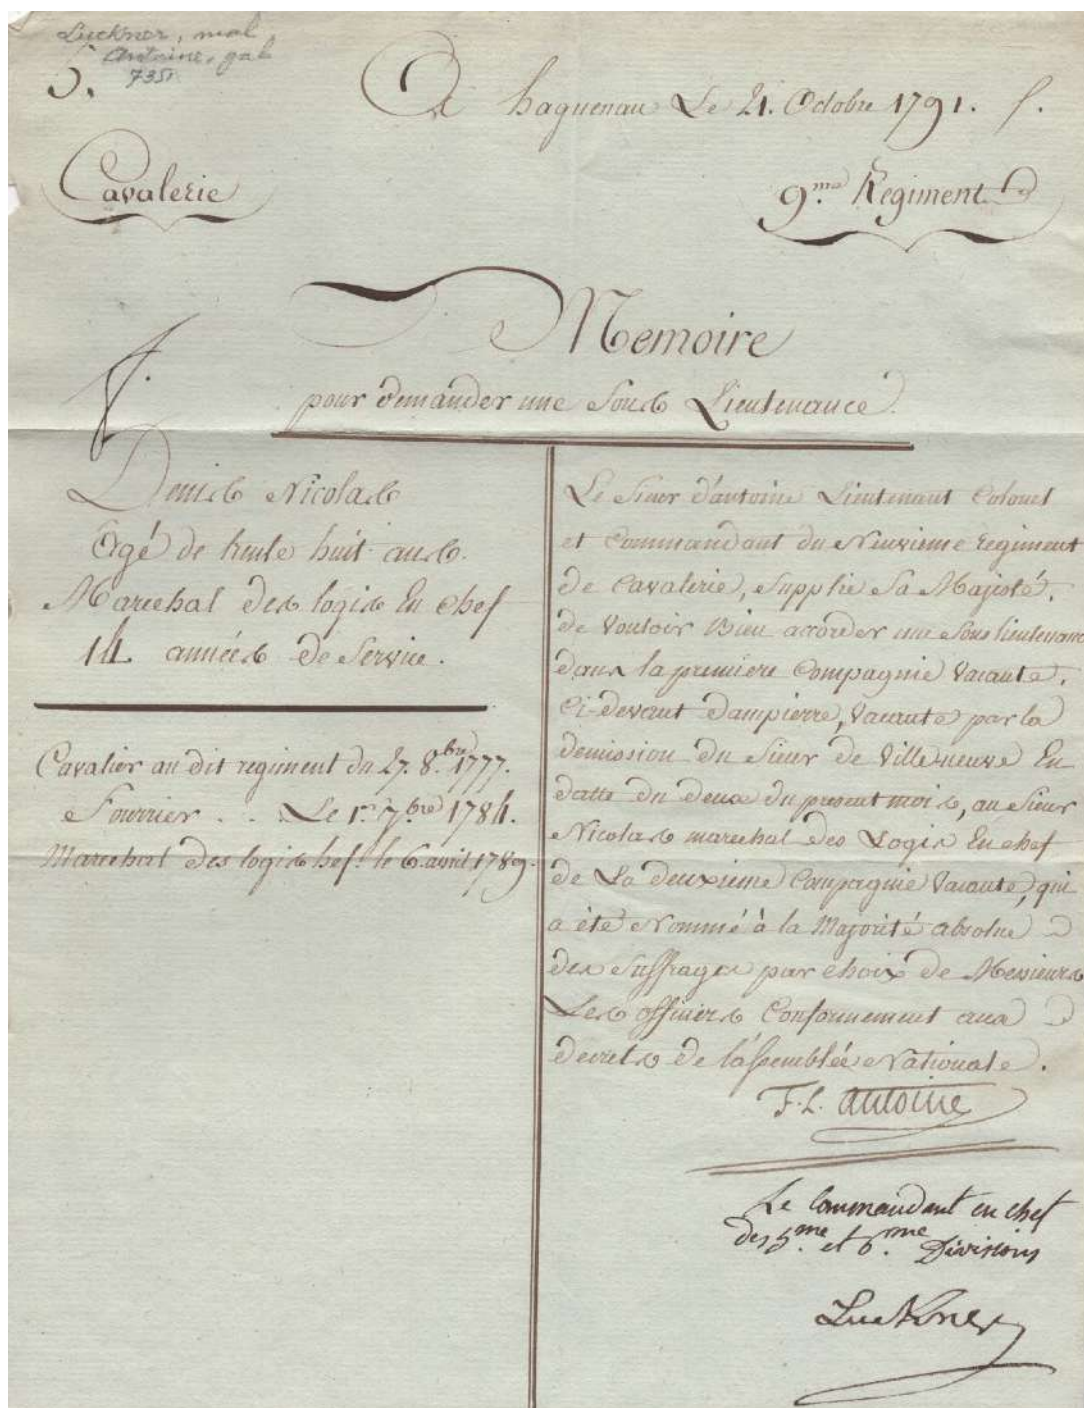 Luckner, mal
Antoine, gal
7351
5.
A haguenau Le 21. Octobre 1791. /.
Cavalerie
9.me Regiment
Memoire
pour demander une Sous Lieutenance.
Denis Nicolas
Agé de trente huit ans.
Marechal des logis En chef
14 années de Service.
Cavalier au dit regiment du 27. 8.bre 1777.
Fourrier . . . Le 1.r 7.bre 1784.
Marechal des logis chef. le 6. avril 1789.
Le Sieur d'antoine Lieutenant Colonel
et Commandant du Neuvieme Regiment
de Cavalerie, Supplie Sa Majesté,
de Vouloir Bien accorder une Sous lieutenance
dans la premiere Compagnie Vacante,
Ci-devant dampierre, Vacante par la
demission du Sieur de Villeneuve En
datte du deux du present mois, au Sieur
Nicolas marechal des Logis En chef
de La deuxieme Compagnie Vacante, qui
a été Nommé à la Majorité absolue
des Suffrages par choix de Messieurs
Les officiers Conformement aux
decrets de l'assemblée Nationale.
F. L. Antoine
Le Commandant en chef
des 5.me et 6.me Divisions
Luckner